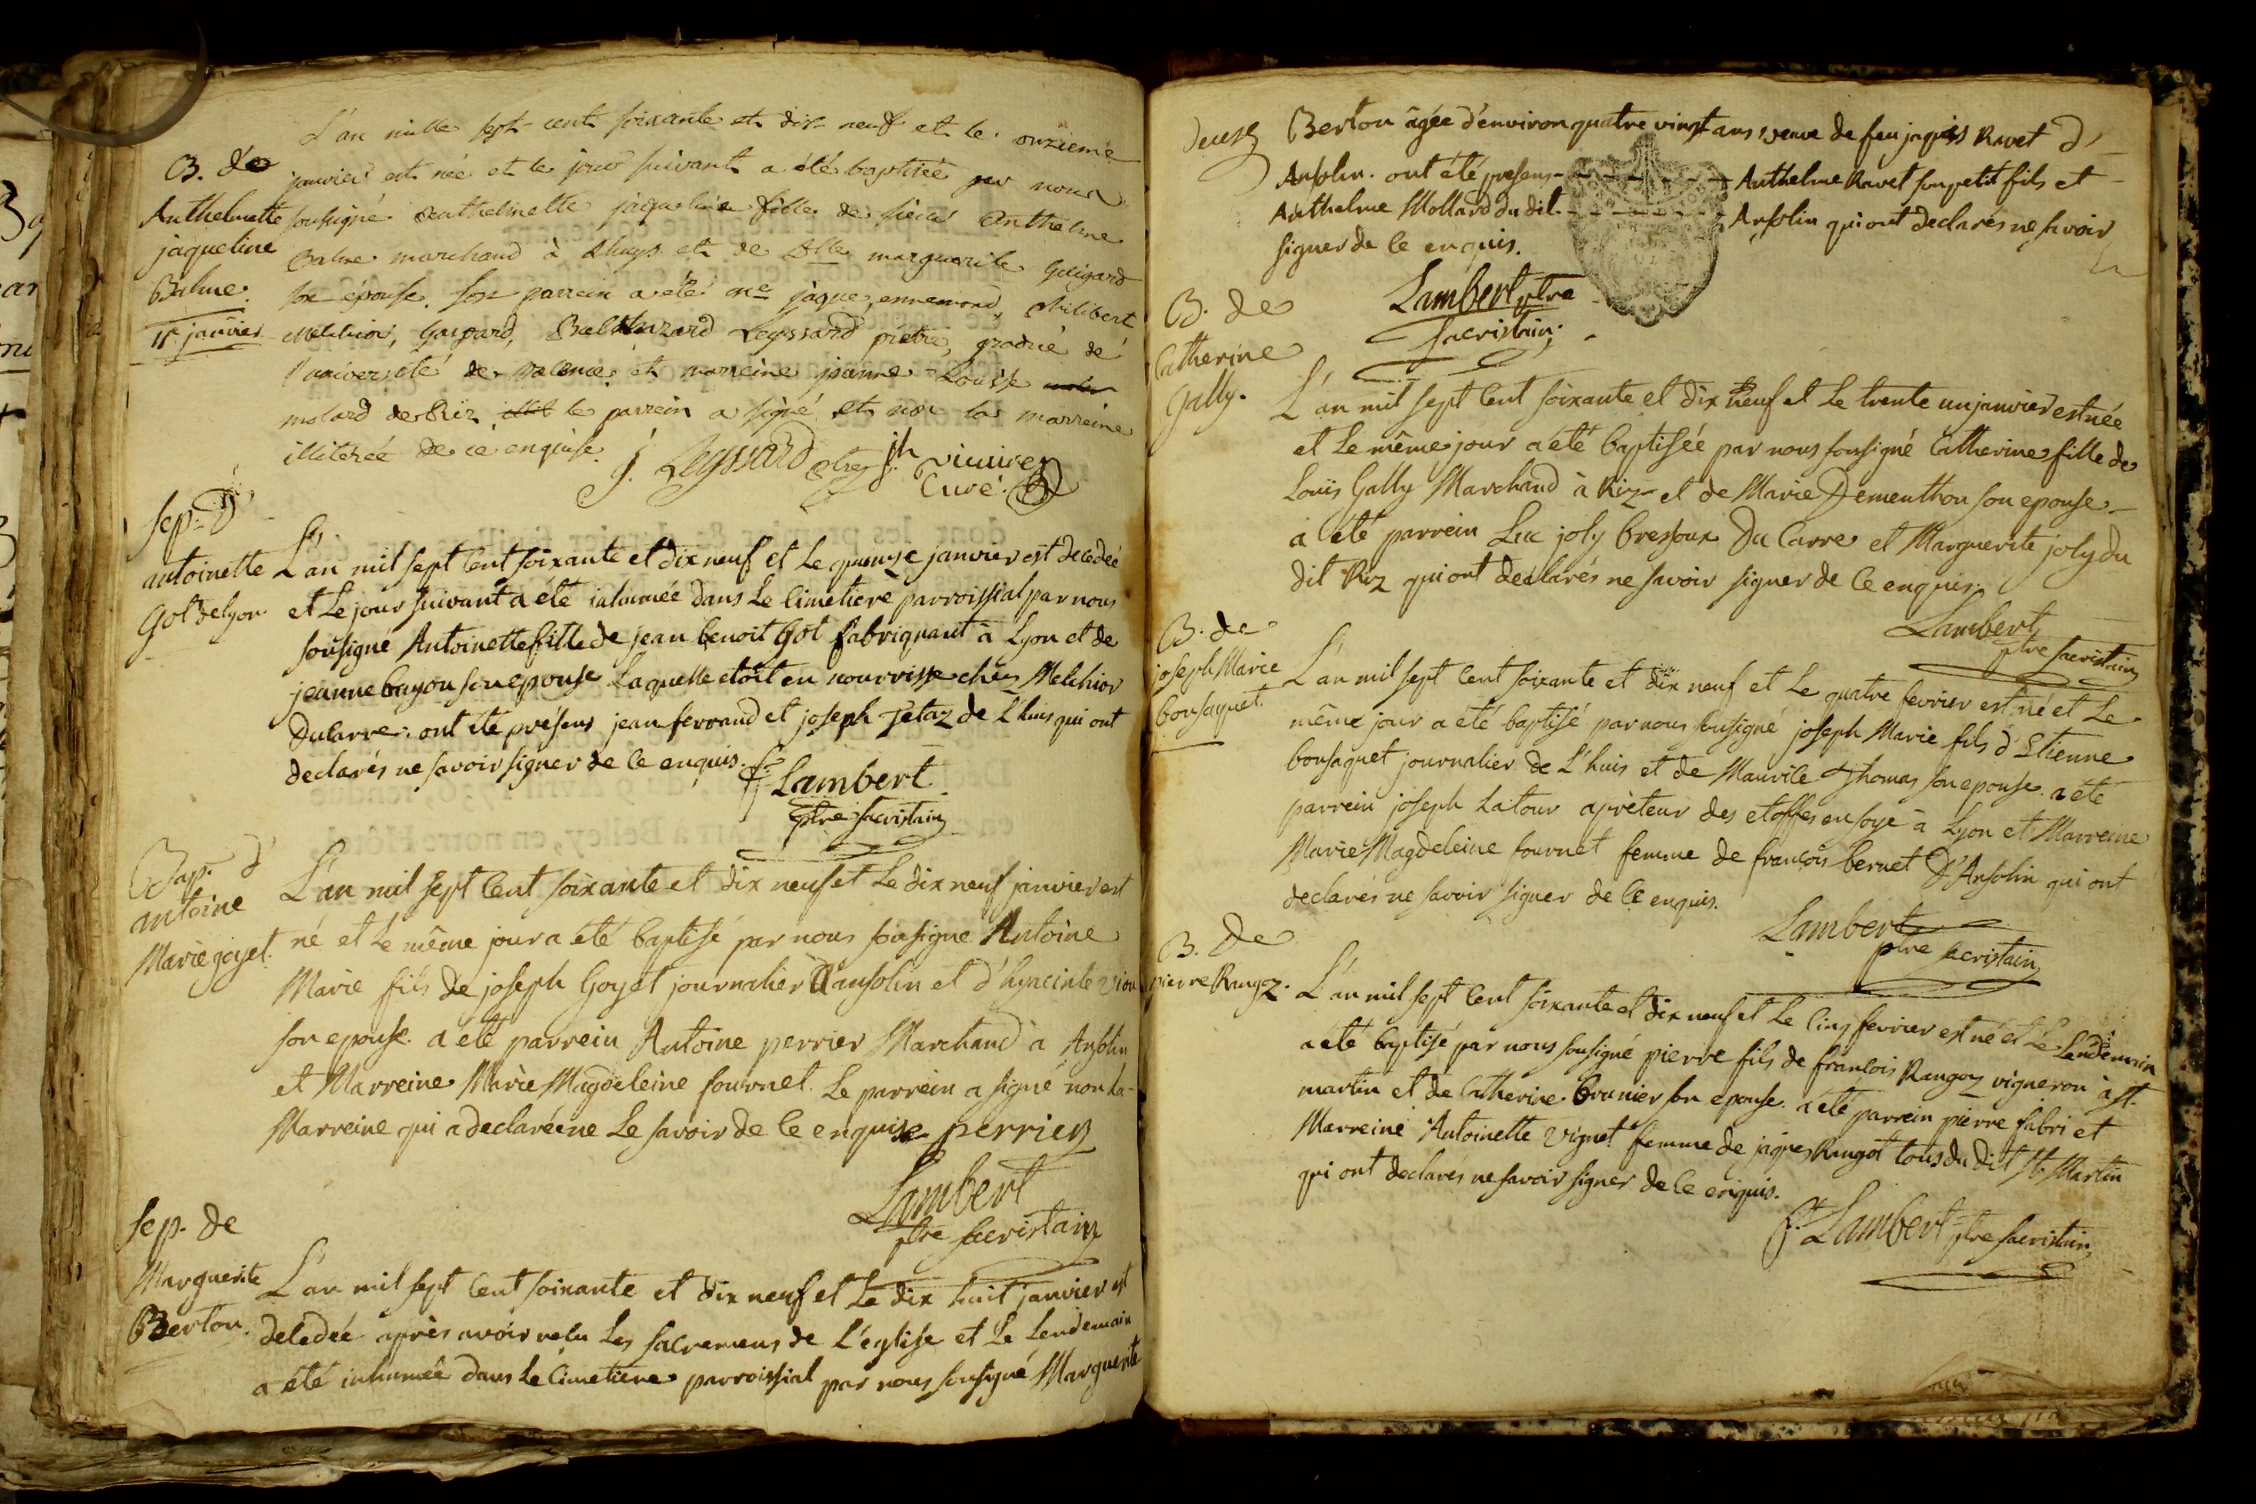 B. de
Anthelmette
jaqueline
Balme
11e janvier
L'an mille sept cent soixante et dix neuf et le onzieme
janvier est née et le jour suivant a été baptisée par nous
sousigné anthelmette jaqueline fille de sieur Anthelme
Balme marchand à Lhuys et de Dlle marguerite Guigard
son épouse. son parrein a été me jaque, ennemond, Philibert
Melchior, Gaspard, Balthazard Leyssard prêtre, gradué de
l'université de valence et marreine jeanne Louise
molard de Riz le parrein a signé et non la marreine
illitérée de ce enquise.
J. Leyssard ptre
Curé.
sep. D'
antoinette
Got de lyon
L'an mil sept cent soixante et dix neuf et le quinze janvier est decedeé
et Le jour suivant a été inhumée dans Le cimetiere parroissial par nous
sousigné Antoinette fille de jean benoit Got fabriquant à Lyon et de
jeanne bayou son epouse Laquelle etoit en nourrisse chés Melchior
Ducarre. ont été présens jean ferrand et joseph Tétaz de L'huis qui ont
declarés ne savoir signer de ce enquis.
Lambert
ptre sacristain
Bap. d'
antoine
Marie goyet
L'an mil sept cent soixante et dix neuf et Le dix neuf janvier est
né et Le même jour a été baptisé par nous sousigné Antoine
Marie fils de joseph Goyet journalier d'ansolin et d'hyacinte vion
son epouse. a été parrein Antoine perrier Marchand à Ansolin
et Marreine Marie Magdeleine fournet. Le parrein a signé non La
Marreine qui a declaréene Le savoir de ce enquise perrier
Lambert
ptre sacristain
sep. de
Marguerite
Berton.
L'an mil sept cent soixante et dix neuf et Le dix huit janvier est
decedeé après avoir reçu Les sacremens de L'église et Le Lendemain
a été inhumée dans Le Cimetiere parroissial par nous sousigné Marguerite
deux
Berton âgée d'environ quatre vingt ans, veuve de feu jaques Ravet d'
Ansolin. ont été presens Anthelme Ravet son petit fils et
Anthelme Mollard du dit Ansolin qui ont declarés ne savoir
signer de ce enquis.
Lambert ptre
sacristain
B. de
Catherine
Gally.
L'an mil sept cent soixante et dix neuf et Le trente un janvier est née
et Le même jour a été baptisée par nous sousigné Catherine fille de
Louis Gally Marchand à Riz et de Marie Dementhon son epouse
a été parrein Luc joly bressoux Du Carre et Marguerite joly du
dit Riz qui ont declarés ne savoir signer de ce enquis.
Lambert
ptre sacristain
B. de
joseph Marie
bonsaquet.
L'an mil sept cent soixante et dix neuf et Le quatre fevrier est né et Le
même jour a été baptisé par nous sousigné joseph Marie fils d'Etienne
bonsaquet journalier de L'huis et de Maurile Thomas son epouse. a été
parrein joseph Latour aprèteur des etoffes en soye à Lyon et Marreine
Marie Magdeleine fournet femme de françois bernet D'Ansolin qui ont
declarés ne savoir signer de ce enquis.
Lambert
ptre sacristain
B. de
pierre Rangoz.
L'an mil sept cent soixante et dix neuf et Le cinq fevrier est né et Le Lendemain
a été baptisé par nous sousigné pierre fils de françois Rangoz vigneron à st.
martin et de Catherine brunier son epouse. a été parrein pierre fabri et
Marreine Antoinette vignet femme de jaques Rangot tous du dit st. Martin
qui ont declarés ne savoir signer de ce enquis.
Lambert ptre sacristain